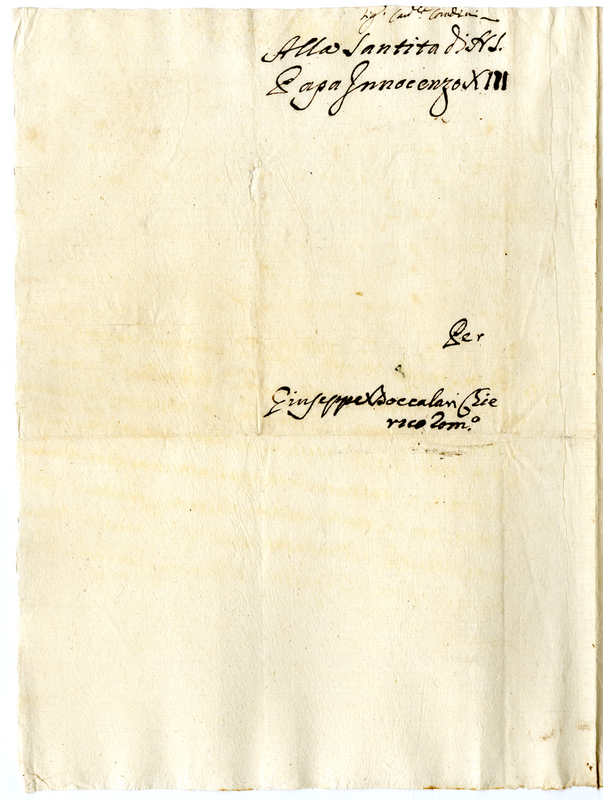 Sig.r Card.le Corradini
Alla Santita di N.S.
Papa Innocenzo XIII
Per
Giuseppe Boccalari Chie
rico Rom.o